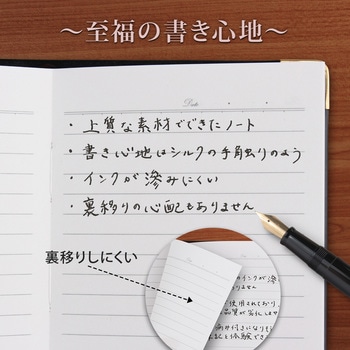 ～至福の書き心地～
Date
・上質な素材でできたノート
・書き心地はシルクの手触りのよう
・インクが滲みにくい
・裏移りの心配もありません
裏移りしにくい
インクが滲
りません
使用されており、